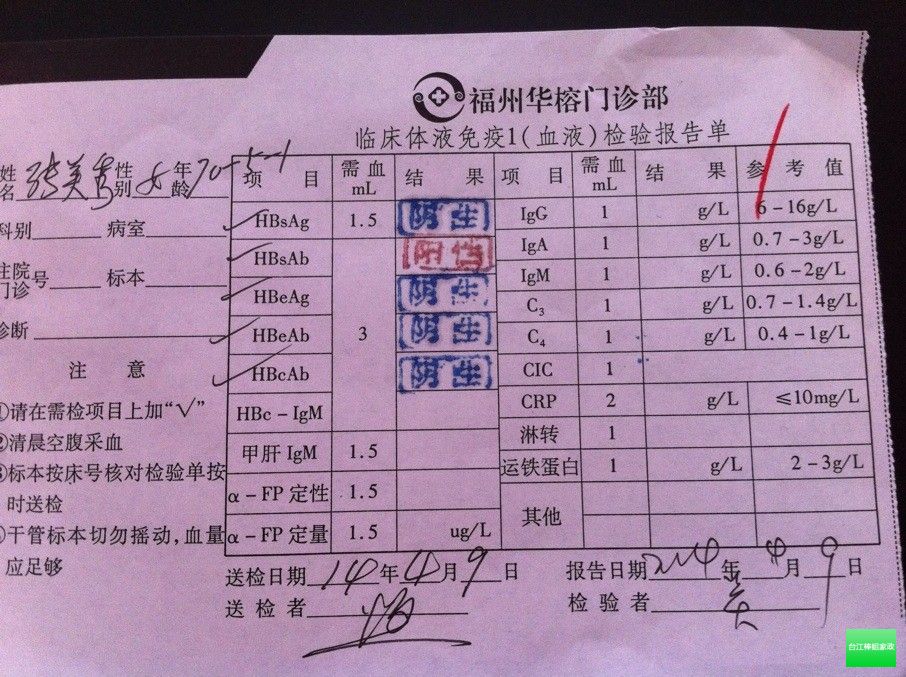 福州华榕门诊部
临床体液免疫1(血液)检验报告单
姓名 张美 性别 女 年龄 70-5-1
科别 病室
住院门诊号 标本
诊断
注 意
①请在需检项目上加“√”
②清晨空腹采血
③标本按床号核对检验单按
时送检
④干管标本切勿摇动,血量
应足够
项 目 需血mL 结 果 项 目 需血mL 结 果 参 考 值
√ HBsAg 1.5 阴性 IgG 1 g/L 6-16g/L
√ HBsAb 3 阳性 IgA 1 g/L 0.7-3g/L
√ HBeAg 阴性 IgM 1 g/L 0.6-2g/L
√ HBeAb 阴性 C3 1 g/L 0.7-1.4g/L
√ HBcAb 阴性 C4 1 g/L 0.4-1g/L
CIC 1
HBc-IgM CRP 2 g/L ≤10mg/L
甲肝 IgM 1.5 淋转 1
α-FP 定性 1.5 运铁蛋白 1 g/L 2-3g/L
α-FP 定量 1.5 ug/L 其他
送检日期 14 年 4 月 9 日 报告日期 年 4 月 9 日
送检者 检验者
台江棒姐家政